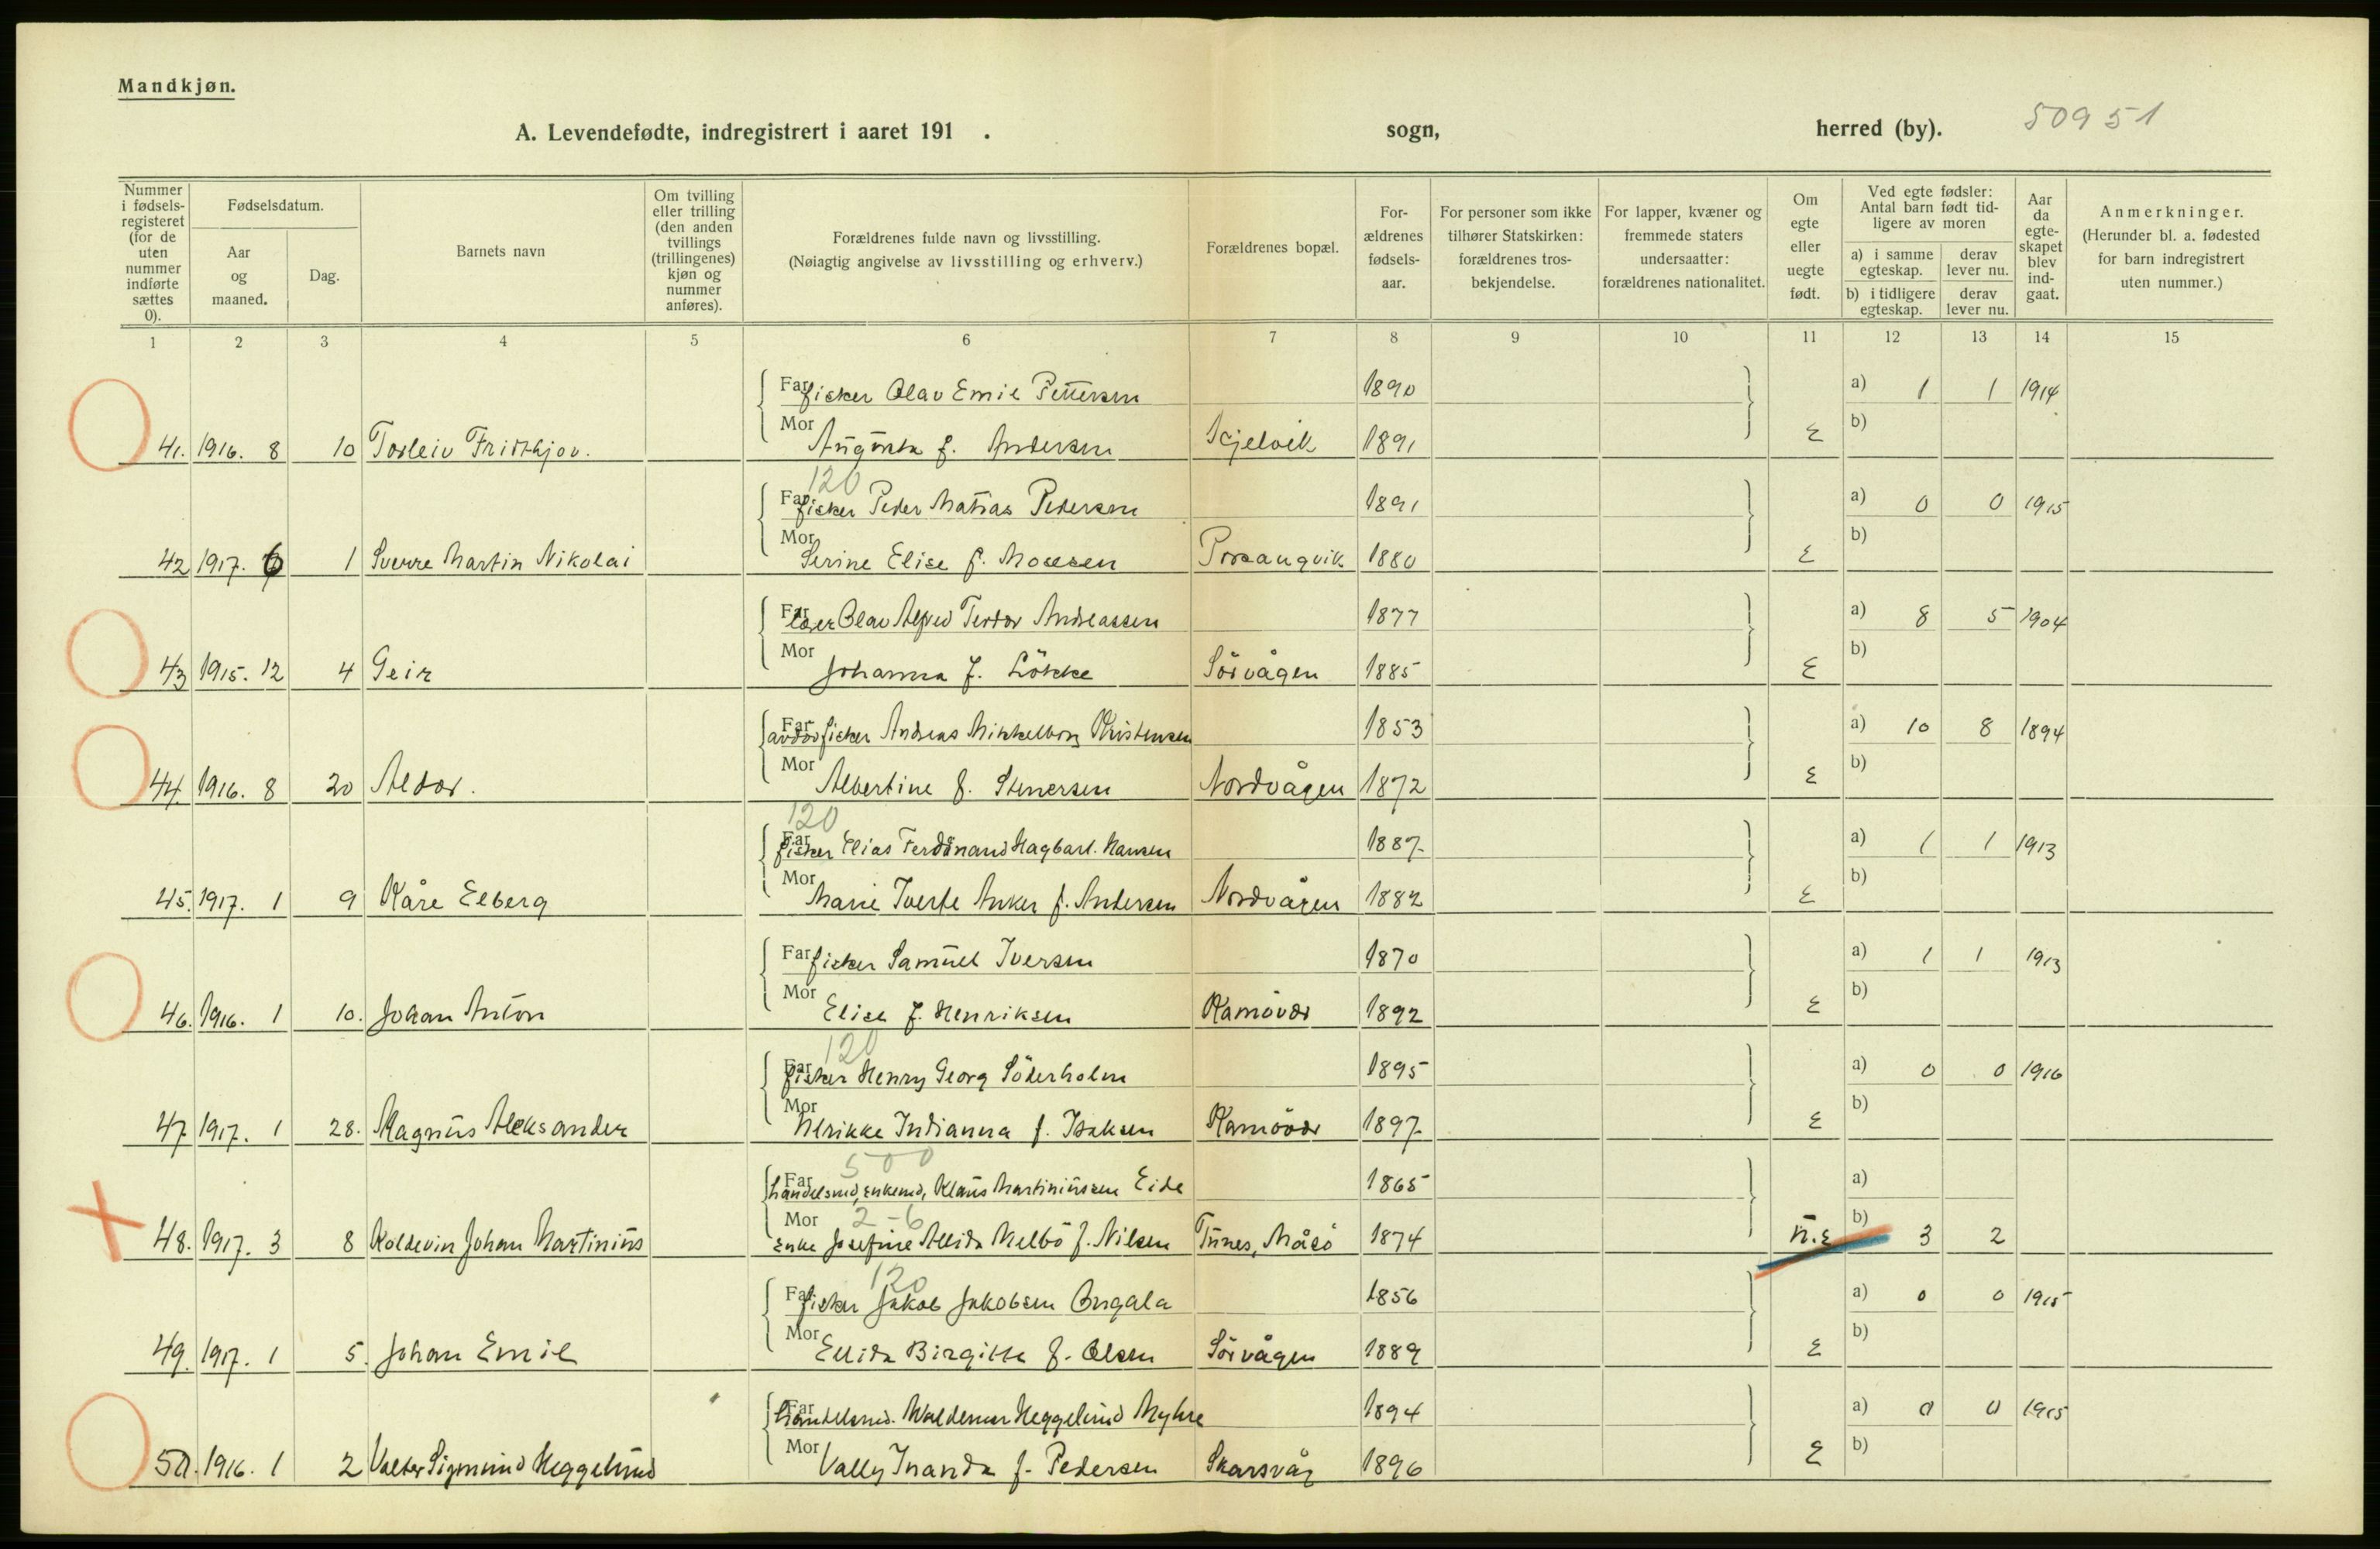 Mandkjøn.
A. Levendefødte, indregistrert i aaret 191 . sogn, herred (by). 50951
Nummer i fødsels-registeret (for de uten nummer indførte sættes 0).
Fødselsdatum.
Aar og maaned.
Dag.
Barnets navn
Om tvilling eller trilling (den anden tvillings (trillingenes) kjøn og nummer anføres).
Forældrenes fulde navn og livsstilling.
(Nøiagtig angivelse av livsstilling og erhverv.)
Forældrenes bopæl.
For-ældrenes fødsels-aar.
For personer som ikke tilhører Statskirken: forældrenes tros-bekjendelse.
For lapper, kvæner og fremmede staters undersaatter: forældrenes nationalitet.
Om egte eller uegte født.
Ved egte fødsler: Antal barn født tid-ligere av moren
a) i samme egteskap. derav lever nu.
b) i tidligere egteskap. derav lever nu.
Aar da egte-skapet blev ind-gaat.
Anmerkninger.
(Herunder bl. a. fødested for barn indregistrert uten nummer.)
1 2 3 4 5 6 7 8 9 10 11 12 13 14 15
Far fisker Olav Emil Pettersen 1890 a) 1 1 1914
41. 1916. 8 10 Torleiv Fridthjov. Mor Augusta f. Andersen Skjelvik 1891 E b)
120
Far fisker Peder Matias Pedersen 1891 a) 0 0 1915
42 1917. 6 1 Sverre Martin Nikolai Mor Serine Elise f. Mosesen Porsangvik 1880 E b)
Far Olav Alfred Teodor Andreassen 1877 a) 8 5 1904
43 1915. 12 4 Geir Mor Johanna f. Lökke Sörvågen 1885 E b)
Far avdød fisker Andreas Mikkelborg Kristensen 1853 a) 10 8 1894
44. 1916. 8 20 Aldor. Mor Albertine f. Stenersen Nordvågen 1872 E b)
120
Far fisker Elias Ferdinand Hagbart. Hansen 1887. a) 1 1 1913
45. 1917. 1 9 Kåre Elberg Mor Marie Tverfe Anker f. Andersen Nordvågen 1882 E b)
Far fisker Samuel Iversen 1870 a) 1 1 1913
46. 1916. 1 10. Johan Anton Mor Elise f. Henriksen Kamövær 1892 E b)
120
Far fisker Henry Georg Söderholm 1895 a) 0 0 1916
47 1917. 1 28. Magnus Aleksander Mor Ulrikke Indianna f. Isaksen Kamövær 1897. E b)
500
Far handelsmd, enkemd, Klaus Martiniussen Eide 1865 a)
2-6
48. 1917. 3 8 Koldevin Johan Martinius Mor Enke Josefine Alida Melbö f. Nilsen Tunes, Måsö 1874 U.E b) 3 2
120
Far fisker Jakob Jakobsen Angala 1856 a) 0 0 1915
49. 1917. 1 5. Johan Emil Mor Ellida Birgitte f. Olsen Sörvågen 1889 E b)
Far Handelsmd. Waldemar Heggelund Myhre 1894 a) 0 0 1915
50. 1916. 1 2 Valter Sigmund Heggelund Mor Vally Inanda f. Pedersen Skarsvåg 1896 E b)